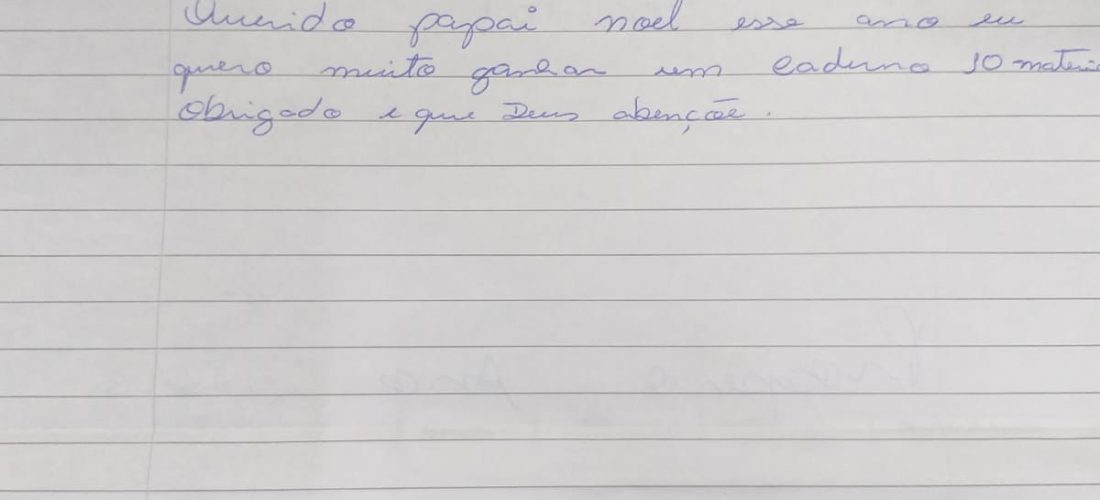 Querido papai noel esse ano eu
quero muito ganhar um caderno 10 materi
Obrigado e que Deus abençõe.